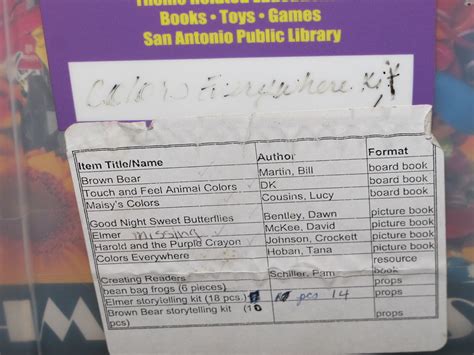 Books • Toys • Games
San Antonio Public Library
Colors Everywhere Kit
Item Title/Name Author Format
Brown Bear Martin, Bill board book
Touch and Feel Animal Colors DK board book
Maisy's Colors Cousins, Lucy board book
Good Night Sweet Butterflies Bentley, Dawn picture book
Elmer missing McKee, David picture book
Harold and the Purple Crayon Johnson, Crockett picture book
Colors Everywhere Hoban, Tana picture book
resource
Creating Readers Schiller, Pam book
bean bag frogs (6 pieces) props
Elmer storytelling kit (18 pcs.) pcs 14 props
Brown Bear storytelling kit (10 props
pcs)